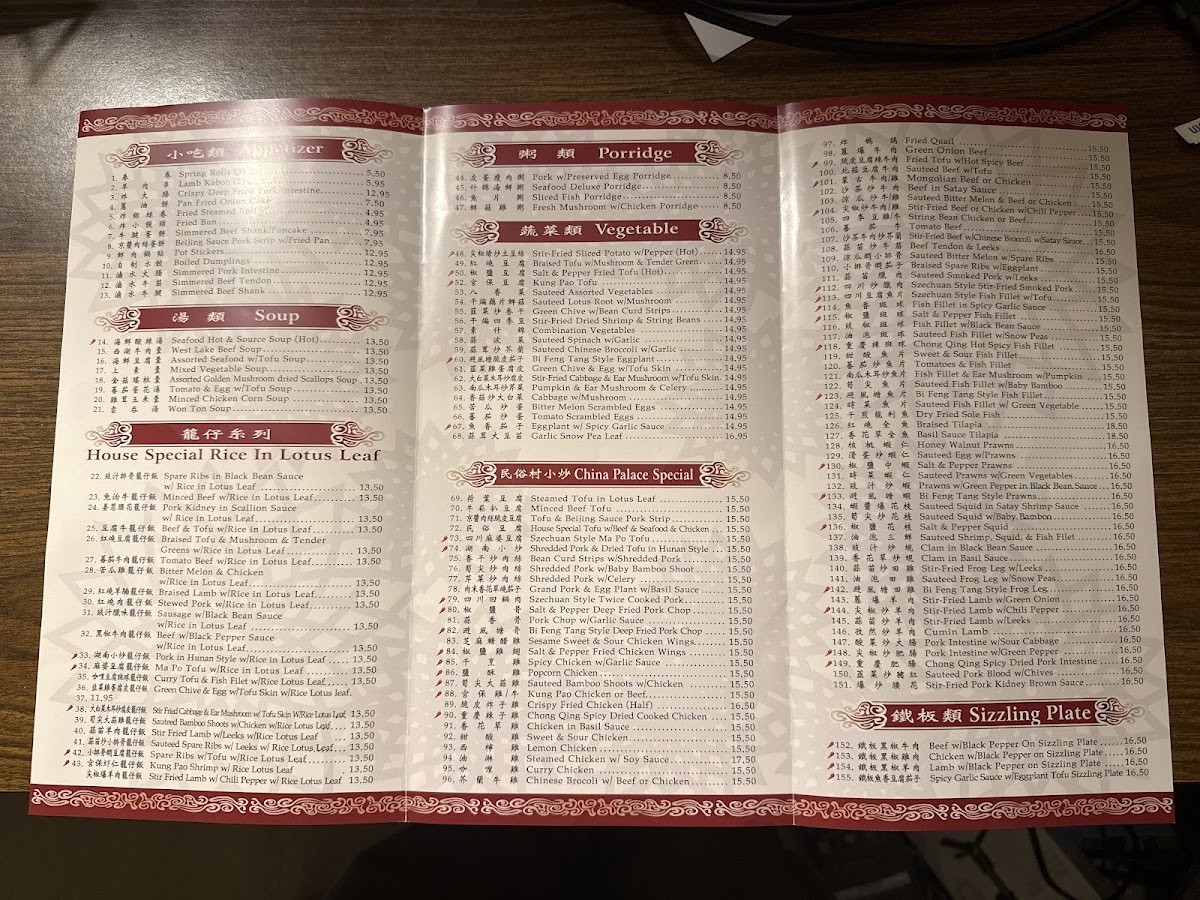 小吃類 Appetizer
1. 春 卷 Spring Rolls (2) 5,50
2. 羊 肉 串 Lamb Kabob (2) 5,95
3. 炸 大 腸 Crispy Deep Fried Pork Intestine 12,95
4. 蔥 油 餅 Pan Fried Onion Cake 7,50
5. 炸 銀 絲 卷 Fried Steamed Roll 4,95
6. 炸 小 饅 頭 Fried Bun 4,95
7. 牛 腱 蛋 餅 Simmered Beef Shank/Pancake 7,95
8. 京醬肉絲蛋餅 Beijing Sauce Pork Strip w/Fried Pan 7,95
9. 鮮 肉 鍋 貼 Pot Stickers 12,95
10. 自 制 水 餃 Boiled Dumplings 12,95
11. 滷 水 大 腸 Simmered Pork Intestine 12,95
12. 滷 水 牛 筋 Simmered Beef Tendon 12,95
13. 滷 水 牛 腱 Simmered Beef Shank 12,95
湯 類 Soup
14. 海鮮酸辣湯 Seafood Hot & Source Soup (Hot) 13,50
15. 西湖牛肉羹 West Lake Beef Soup 13,50
16. 海鮮豆腐羹 Assorted Seafood w/Tofu Soup 13,50
17. 上 素 羹 Mixed Vegetable Soup 13,50
18. 金菇瑤柱羹 Assorted Golden Mushroom dried Scallops Soup 13,50
19. 蕃茄蛋花湯 Tomato & Egg w/Tofu Soup 13,50
20. 雞茸玉米羹 Minced Chicken Corn Soup 13,50
21. 雲 吞 湯 Won Ton Soup 13,50
籠仔系列
House Special Rice In Lotus Leaf
22. 豉汁排骨籠仔飯 Spare Ribs in Black Bean Sauce
w/Rice in Lotus Leaf 13,50
23. 免治牛籠仔飯 Minced Beef w/Rice in Lotus Leaf 13,50
24. 姜蔥腰花籠仔飯 Pork Kidney in Scallion Sauce
w/ Rice in Lotus Leaf 13,50
25. 豆腐牛籠仔飯 Beef & Tofu w/Rice in Lotus Leaf 13,50
26. 紅燒豆腐籠仔飯 Braised Tofu & Mushroom & Tender
Greens w/Rice in Lotus Leaf 13,50
27. 蕃茄牛肉籠仔飯 Tomato Beef w/Rice in Lotus Leaf 13,50
28. 苦瓜雞籠仔飯 Bitter Melon & Chicken
w/Rice in Lotus Leaf 13,50
29. 紅燒羊腩籠仔飯 Braised Lamb w/Rice in Lotus Leaf 13,50
30. 紅燒肉籠仔飯 Stewed Pork w/Rice in Lotus Leaf 13,50
31. 豉汁臘味籠仔飯 Sausage w/Black Bean Sauce
w/Rice in Lotus Leaf 13,50
32. 黑椒牛肉籠仔飯 Beef w/Black Pepper Sauce
w/Rice in Lotus Leaf 13,50
33. 湖南小炒籠仔飯 Pork in Hunan Style w/Rice in Lotus Leaf 13,50
34. 麻婆豆腐籠仔飯 Ma Po Tofu w/Rice in Lotus Leaf 13,50
35. 咖哩豆腐斑球籠仔飯 Curry Tofu & Fish Filet w/Rice Lotus Leaf 13,50
36. 韭菜雞蛋腐皮籠仔飯 Green Chive & Egg w/Tofu Skin W/Rice Lotus leaf.
37. 11.95
38. 大白菜木耳炒腐皮籠仔飯 Stir Fried Cabbage & Ear Mushroom w/Tofu Skin W/Rice Lotus Leaf 13,50
39. 筍尖大菇雞籠仔飯 Sauteed Bamboo Shoots w/Chicken w/Rice Lotus Leaf 13,50
40. 蒜苗羊肉籠仔飯 Stir Fried Lamb w/Leeks w/Rice Lotus Leaf 13,50
41. 蒜苗炒小排骨籠仔飯 Sauteed Spare Ribs w/ Leeks w/ Rice Lotus Leaf 13,50
42. 小排骨燜豆腐籠仔飯 Spare Ribs w/Tofu w/w/Rice Lotus Leaf 13,50
43. 宮保虾仁籠仔飯 Kung Pao Shrimp w/Rice Lotus Leaf 13,50
尖椒爆羊肉籠仔飯 Stir Fried Lamb w/Chili Pepper w/Rice Lotus Leaf 13,50
粥 類 Porridge
44. 皮蛋瘦肉粥 Pork w/Preserved Egg Porridge 8,50
45. 什錦海鮮粥 Seafood Deluxe Porridge 8,50
46. 魚 片 粥 Sliced Fish Porridge 8,50
47. 鮮菇雞粥 Fresh Mushroom w/Chicken Porridge 8,50
蔬菜類 Vegetable
48. 尖椒熗炒土豆絲 Stir-Fried Sliced Potato w/Pepper (Hot) 14.95
49. 紅 燒 豆 腐 Braised Tofu w/Mushroom & Tender Green 14.95
50. 椒 鹽 豆 腐 Salt & Pepper Fried Tofu (Hot) 14.95
52. 宮 保 豆 腐 Kung Pao Tofu 14.95
53. 八 香 菜 Sauteed Assorted Vegetables 14.95
54. 干煸藕片鮮菇 Sauteed Lotus Root w/Mushroom 14.95
55. 韮菜炒香干 Green Chive w/Bean Curd Strips 14.95
56. 干煸四季豆 Stir-Fried Dried Shrimp & String Beans 14.95
57. 素 什 錦 Combination Vegetables 14.95
58. 蒜 波 菜 Sauteed Spinach w/Garlic 14.95
59. 蒜茸炒芥蘭 Sauteed Chinese Broccoli w/Garlic 14.95
60. 避風塘脆皮茄子 Bi Feng Tang Style Eggplant 14.95
61. 韮菜雞蛋腐皮 Green Chive & Egg w/Tofu Skim 14.95
62. 大白菜木耳炒腐皮 Stir-Fried Cabbage & Ear Mushroom w/Tofu Skim 14.95
63. 南瓜木耳炒芹菜 Pumpkin & Ear Mushroom & Celery 14.95
64. 香菇炒大白菜 Cabbage w/Mushroom 14.95
65. 苦 瓜 炒 蛋 Bitter Melon Scrambled Eggs 14.95
66. 蕃 茄 炒 蛋 Tomato Scrambled Eggs 14.95
67. 魚 香 茄 子 Eggplant w/Spicy Garlic Sauce 14.95
68. 蒜茸大豆苗 Garlic Snow Pea Leaf 16.95
民俗村小炒 China Palace Special
69. 荷 葉 豆 腐 Steamed Tofu in Lotus Leaf 15,50
70. 牛崧扒豆腐 Minced Beef Tofu 15,50
71. 京醬肉絲脆皮豆腐 Tofu & Beijing Sauce Pork Strip 15,50
72. 民 俗 豆 腐 House Special Tofu w/Beef & Seafood & Chicken 15,50
73. 四川麻婆豆腐 Szechuan Style Ma Po Tofu 15,50
74. 湖 南 小 炒 Shredded Pork & Dried Tofu in Hunan Style 15,50
75. 香干炒肉絲 Bean Curd Strips w/Shredded Pork 15,50
76. 筍尖炒肉絲 Shredded Pork w/Baby Bamboo Shoot 15,50
77. 芹菜炒肉絲 Shredded Pork w/Celery 15,50
78. 肉末香花草燒茄子 Grand Pork & Egg Plant w/Basil Sauce 15,50
79. 四川回鍋肉 Szechuan Style Twice Cooked Pork 15,50
80. 椒 鹽 骨 Salt & Pepper Deep Fried Pork Chop 15,50
81. 蒜 香 骨 Pork Chop w/Garlic Sauce 15,50
82. 避 風 塘 骨 Bi Feng Tang Style Deep Fried Pork Chop 15,50
83. 芝麻糖醋雞 Sesame Sweet & Sour Chicken Wings 15,50
84. 椒 鹽 雞 翅 Salt & Pepper Fried Chicken Wings 15,50
85. 干 烹 雞 Spicy Chicken w/Garlic Sauce 15,50
86. 鹽 酥 雞 Popcorn Chicken 15,50
87. 筍尖大菇雞 Sauteed Bamboo Shoots w/Chicken 15,50
88. 宮 保 雞/牛 Kung Pao Chicken or Beef 15,50
89. 脆 皮 炸 子 雞 Crispy Fried Chicken (Half) 16,50
90. 重慶辣子雞 Chong Qing Spicy Dried Cooked Chicken 15,50
91. 香 花 草 雞 Chicken in Basil Sauce 15,50
92. 甜 酸 雞 Sweet & Sour Chicken 15,50
93. 西 檸 雞 Lemon Chicken 15,50
94. 油 淋 雞 Steamed Chicken w/ Soy Sauce 17.50
95. 咖 哩 雞 Curry Chicken 15,50
96. 芥 蘭 牛 雞 Chinese Brocoli w/Beef or Chicken 15,50
97. 炸 鵪 鶉 Fried Quail 16,50
98. 蔥 爆 牛 肉 Green Onion Beef 15,50
99. 脆皮豆腐辣牛肉 Fried Tofu w/Hot Spicy Beef 15,50
100. 北菇豆腐牛肉 Sauteed Beef w/Tofu 15,50
101. 蒙古牛肉/雞 Mongolian Beef or Chicken 15,50
102. 沙茶炒牛肉 Beef in Satay Sauce 15,50
103. 涼瓜炒牛/雞 Sauteed Bitter Melon & Beef or Chicken 15,50
104. 尖椒炒牛肉/雞 Stir-Fried Beef or Chicken w/Chili Pepper 15,50
105. 四季豆雞/牛 String Bean Chicken or Beef 15,50
106. 蕃 茄 牛 Tomato Beef 15,50
107. 沙茶牛肉炒芥蘭 Stir-Fried Beef w/Chinese Broccoli w/Satay Sauce 15,50
108. 蒜苗炒牛筋 Beef Tendon & Leeks 15,50
109. 涼瓜燜小排骨 Sauteed Bitter Melon w/Spare Ribs 15,50
110. 小排骨燜茄子 Braised Spare Ribs w/Eggplant 15,50
111. 蒜 苗 臘 肉 Sauteed Smoked Pork w/Leeks 15,50
112. 四川炒臘肉 Szechuan Style Stir-Fried Smoked Pork 15,50
113. 四川豆腐魚片 Szechuan Style Fish Fillet w/Tofu 15,50
114. 魚 香 斑 球 Fish Fillet in Spicy Garlic Sauce 15,50
115. 椒 鹽 斑 球 Salt & Pepper Fish Fillet 15,50
116. 豉 椒 斑 球 Fish Fillet w/Black Bean Sauce 15,50
117. 油 泡 斑 球 Sauteed Fish Fillet w/Snow Peas 15,50
118. 重慶辣斑球 Chong Qing Hot Spicy Fish Fillet 15,50
119. 甜 酸 魚 片 Sweet & Sour Fish Fillet 15,50
120. 蕃茄炒魚片 Tomatoes & Fish Fillet 15,50
121. 南瓜木耳炒魚片 Fish Fillet & Ear Mushroom w/Pumpkin 15,50
122. 筍 尖 魚 片 Sauteed Fish Fillet w/Baby Bamboo 15,50
123. 避風塘魚片 Bi Feng Tang Style Fish Fillet 15,50
124. 時 菜 魚 片 Sauteed Fish Fillet w/ Green Vegetable 15,50
125. 干煎龍利魚 Dry Fried Sole Fish 15,50
126. 紅 燒 全 魚 Braised Tilapia 18,50
127. 香花草全魚 Basil Sauce Tilapia 18,50
128. 核 桃 蝦 仁 Honey Walnut Prawns 16,50
129. 滑蛋炒蝦仁 Sauteed Egg w/Prawns 16,50
130. 椒 鹽 中 蝦 Salt & Pepper Prawns 16,50
131. 時 菜 蝦 仁 Sauteed Prawns w/Green Vegetables 16,50
132. 豉 汁 炒 蝦 Prawns w/Green Pepper in Black Bean Sauce 16,50
133. 避 風 塘 蝦 Bi Feng Tang Style Prawns 16,50
134. 蝦醬爆花枝 Sauteed Squid in Satay Shrimp Sauce 16,50
135. 筍尖炒花枝 Sauteed Squid w/Baby Bamboo 16,50
136. 椒 鹽 花 枝 Salt & Pepper Squid 16,50
137. 油 泡 三 鮮 Sauteed Shrimp, Squid, & Fish Filet 16,50
138. 豉 汁 炒 蜆 Clam in Black Bean Sauce 16,50
139. 香花草炒蜆 Clam in Basil Sauce 16,50
140. 蒜苗炒田雞 Stir-Fried Frog Leg w/Leeks 16,50
141. 油 泡 田 雞 Sauteed Frog Leg w/Snow Peas 16,50
142. 避風塘田雞 Bi Feng Tang Style Frog Leg 16,50
143. 蔥 爆 羊 肉 Stir-Fried Lamb w/Green Onion 16,50
144. 尖椒炒羊肉 Stir-Fried Lamb w/Chili Pepper 16,50
145. 蒜苗炒羊肉 Stir-Fried Lamb w/Leeks 16,50
146. 孜然炒羊肉 Cumin Lamb 16,50
147. 酸菜炒大腸 Pork Intestine w/Sour Cabbage 16,50
148. 尖椒炒肥腸 Pork Intestine w/Green Pepper 16,50
149. 重 慶 肥 腸 Chong Qing Spicy Dried Pork Intestine 16,50
150. 韮菜炒豬紅 Sauteed Pork Blood w/Chives 16,50
151. 爆 炒 腰 花 Stir-Fried Pork Kidney Brown Sauce 16,50
鐵板類 Sizzling Plate
152. 鐵板黑椒牛肉 Beef w/Black Pepper On Sizzling Plate 16,50
153. 鐵板黑椒雞 Chicken w/Black Pepper on Sizzling Plate 16,50
154. 鐵板黑椒羊肉 Lamb w/Black Pepper on Sizzling Plate 16,50
155. 鐵板魚香豆腐茄子 Spicy Garlic Sauce w/Eggplant Tofu Sizzling Plate 16,50